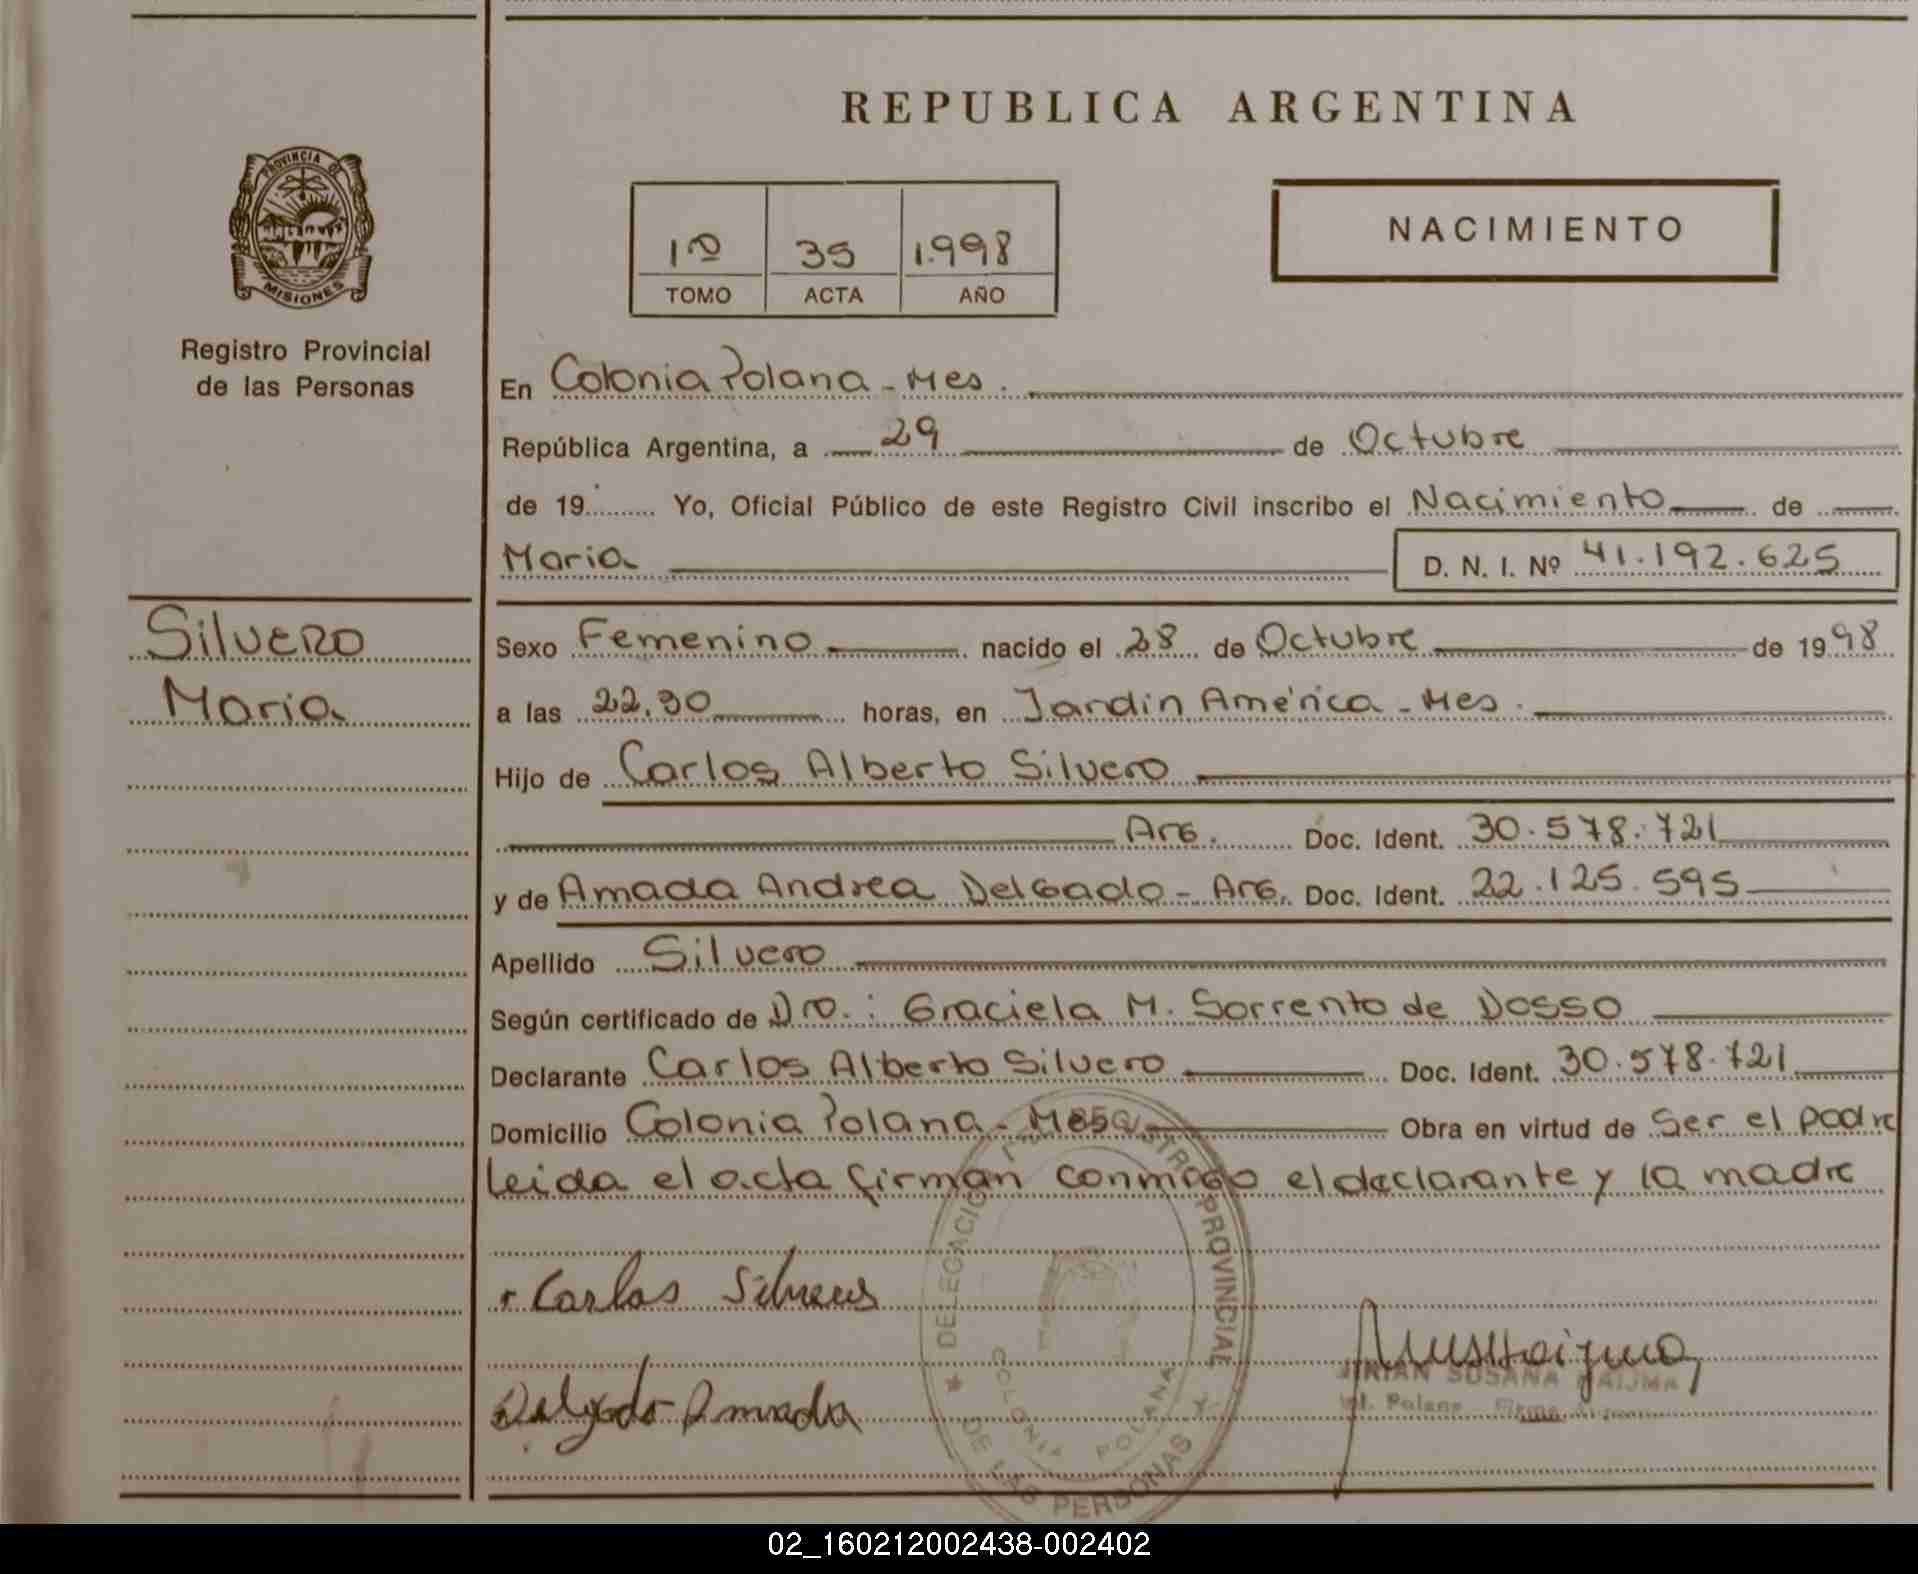 REPUBLICA ARGENTINA
PROVINCIA DE
MISIONES
Registro Provincial
de las Personas
1º 35 1.998
TOMO ACTA AÑO
NACIMIENTO
En Colonia Polana - Mes.
República Argentina, a 29 de Octubre
de 19 Yo, Oficial Público de este Registro Civil inscribo el Nacimiento de
Maria D. N. I. Nº 41.192.625
Silvero
Maria
Sexo Femenino nacido el 28 de Octubre de 1998
a las 22.30 horas, en Jardin América - Mes.
Hijo de Carlos Alberto Silvero
Arg. Doc. Ident. 30.578.721
y de Amada Andrea Delgado - Arg. Doc. Ident. 22.125.595
Apellido Silvero
Según certificado de Dra.: Graciela M. Sorrento de Dosso
Declarante Carlos Alberto Silvero Doc. Ident. 30.578.721
Domicilio Colonia Polana - Mes Obra en virtud de Ser el padre
leida el acta firman conmigo el declarante y la madre
Carlos Silvero
Delgado Amada
DELEGACION REGISTRO PROVINCIAL
DE LAS PERSONAS
COLONIA POLANA
MIRIAN SUSANA NAIJMA
Polana
02_160212002438-002402